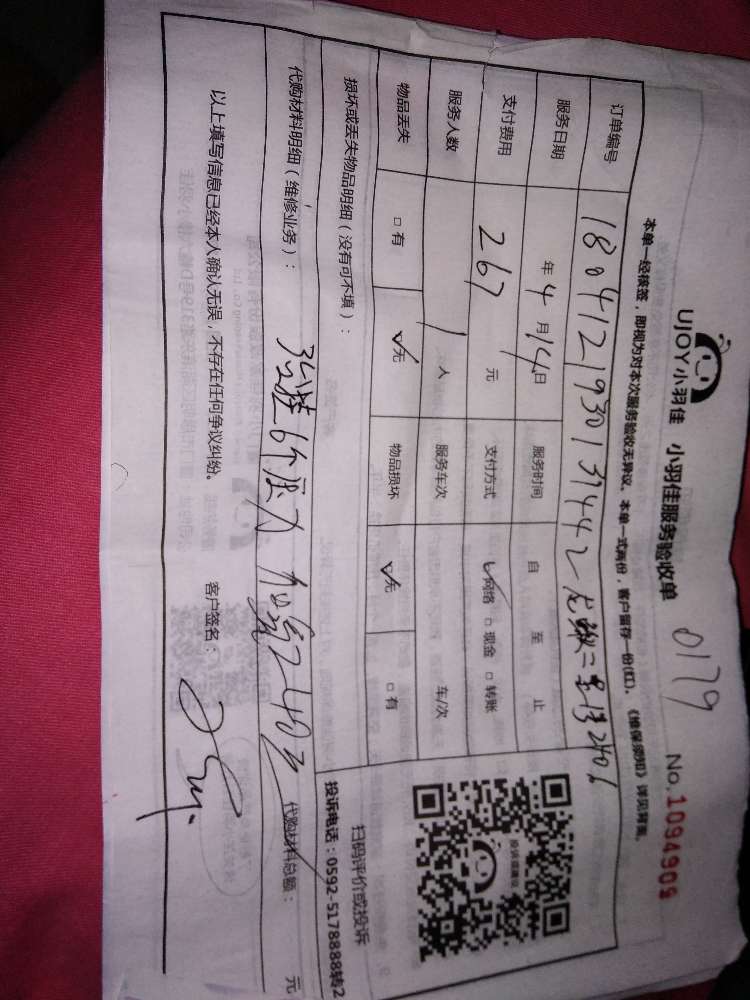 UJOY小羽佳 小羽佳服务验收单 0179 No.1094909
本单一经核签，即视为对本次服务验收无异议。本单一式两份，客户留存一份(红)。《维保须知》详见背面。
订单编号 180412193013144 2401
服务日期 年 4 月 14 日 服务时间 自 至 止
支付费用 267 元 支付方式 ☑网络 □现金 □转账
服务人数 1 人 服务车次 车/次
物品丢失 □有 ☑无 物品损坏 ☑无 □有
损坏或丢失物品明细（没有可不填）：
代购材料明细（维修业务）： 改装6个压力 240 代购材料总额： 元
以上填写信息已经本人确认无误，不存在任何争议纠纷。 客户签名：
投诉或建议
扫码评价或投诉
投诉电话：0592-5178888转2